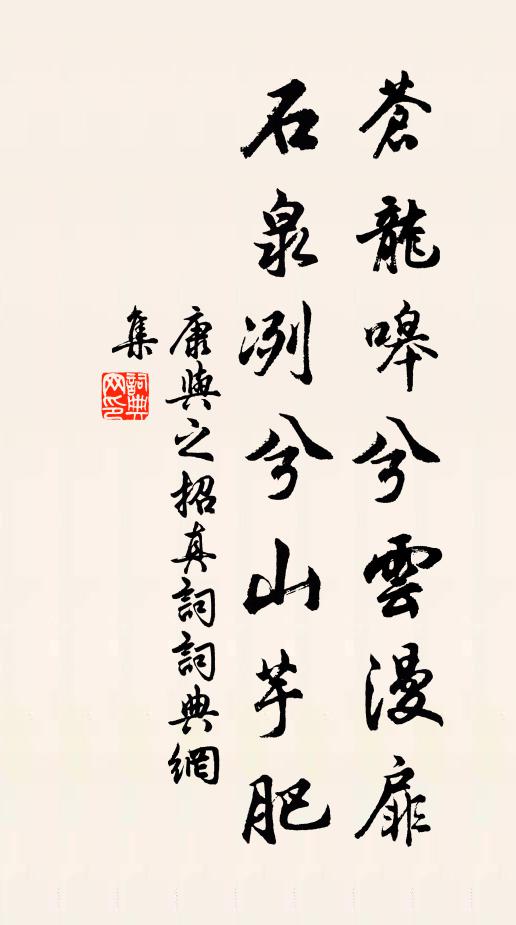 蒼龍嗥兮雲漫扉
石泉冽兮山芋肥
康與之招真詞詞典網
集
詞典网印